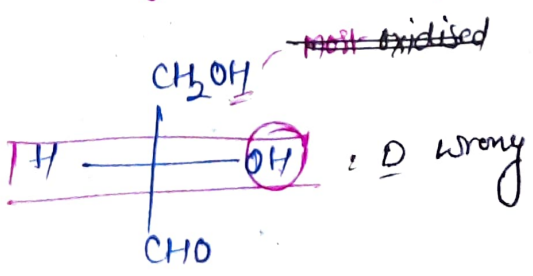 most oxidised
CH2OH
H OH : D wrong
CHO